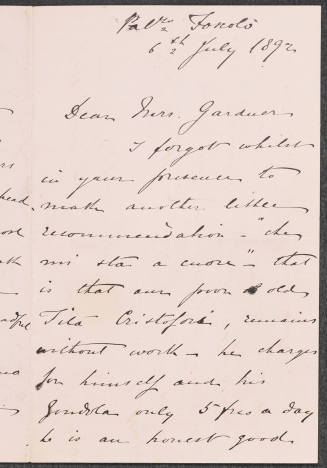 Pal.zo Foscolo
6th July 1892
Dear Mrs. Gardner
I forgot whilst
in your presence to
make another little
recommendation - "che
mi sta a cuore" - that
is that our poor old
Tita Cristofori, remains
without work - he charges
for himself and his
Gondola only 5 frcs a day
he is an honest good
head